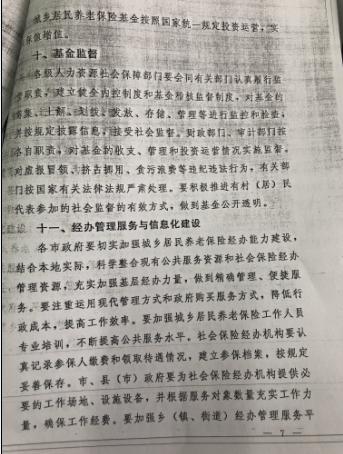 城乡居民养老保险基金按照国家统一规定投资运营，实
保值增值。
十、基金监督
各级人力资源社会保障部门要会同有关部门认真履行监
管职责，建立健全内控制度和基金稽核监督制度，对基金的
筹集、上解、划拨、发放、存储、管理等进行监控和检查，
并按规定披露信息，接受社会监督。财政部门、审计部门按
各自职责，对基金的收支、管理和投资运营情况实施监督。
对虚报冒领、挤占挪用、贪污浪费等违纪违法行为，有关部
门按国家有关法律法规严肃处理。要积极推进有村（居）民
代表参加的社会监督的有效方式，做到基金公开透明。
十一、经办管理服务与信息化建设
各市政府要切实加强城乡居民养老保险经办能力建设，
结合本地实际，科学整合现有公共服务资源和社会保险经办
管理资源，充实加强基层经办力量，做到精确管理、便捷服
务。要注重运用现代管理方式和政府购买服务方式，降低行
政成本，提高工作效率。要加强城乡居民养老保险工作人员
专业培训，不断提高公共服务水平。社会保险经办机构要认
真记录参保人缴费和领取待遇情况，建立参保档案，按规定
妥善保存。市、县（市）政府要为社会保险经办机构提供必
要的工作场地、设施设备，并根据服务对象数量充实工作力
量，确保工作经费。要加强乡（镇、街道）经办管理服务平
— 7 —